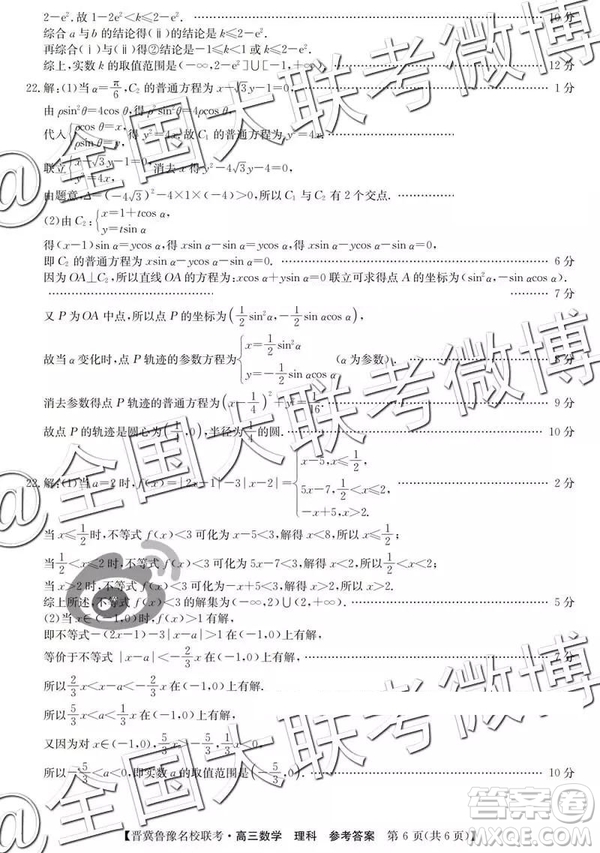 2-e². 故 1-2e²<k≤2-e². 10分
综合a与b的结论得(ⅱ)的结论是-1≤k≤2-e².
再综合(ⅰ)与(ⅱ)得②结论是-1≤k<1或k≤2-e².
综上,实数k的取值范围是(-∞,2-e²]∪[-1, 12分
22.解:(1)当α=π/6,C₂的普通方程为x-√3y-1=0. 1分
由ρsin²θ=4cosθ,得ρ²sin²θ=4ρcosθ.
代入{ρcosθ=x, 得y²=4x.故C₁的普通方程为y²=4x.
联立{x-√3y-1=0, 消去x得
由题意,Δ=(-4√3)²-4×1×(-4)>0,所以C₁与C₂有2个交点.
(2)由C₂:{x=1+tcosα, y=tsinα
得(x-1)sinα=ycosα,得xsinα-sinα=ycosα,得xsinα-ycosα
即C₂的普通方程为xsinα-ycosα-sinα=0. 6分
因为OA⊥C₂,所以直线OA的方程为:xcosα+ysinα=0联立可求得点A的坐标为(sin²α,-sinα
7分
又P为OA中点,所以点P的坐标为(1/2sin²α,-1/2sinαcosα
故当α变化时,点P轨迹的参数方程为{x=1/2sin²α y=-1/2sinα (α为参数).
消去参数得点P轨迹的普通方程为(x-1/4)²+y²=1/16. 9分
故点P的轨迹是圆心为(1/4,0),半径为1/4的圆. 10分
23.解:(1)当a=2时,f(x)=|2x-1|-3|x-2|={x-5,x≤1/2, 5x-7,1/2<x≤2, -x+5,x>2. 2分
当x≤1/2时,不等式f(x)<3可化为x-5<3,解得x<8,所以x≤
当1/2<x≤2时,不等式f(x)<3可化为5x-7<3,解得x<2,所以1/2<x<2.
当x>2时,不等式f(x)<3可化为-x+5<3,解得x>2,所以x>2.
综上所述,不等式f(x)<3的解集为(-∞,2)∪(2,+∞). 5分
(2)当x∈(-1,0)时,f(x)>1有解,
即不等式-(2x-1)-3|x-a|>1在(-1,0)上有解,
等价于不等式|x-a|<-2/3x在(-1,0)上有解, 7分
所以2/3x<x-a<-2/3x在(-1,0)上有解,
所以5/3x<a<1/3x在(-1,0)上有解,
又因为对x∈(-1,0),
所以-5/3<a<0,即实数a的取值范围是(-5/3,0). 10分
【晋冀鲁豫名校联考·高三数学 理科 参考答案 第6页(共6页)】
@全国大联考微博
@全国大联考微博
@全国大联考微博
答案圈
MXEQE.COM